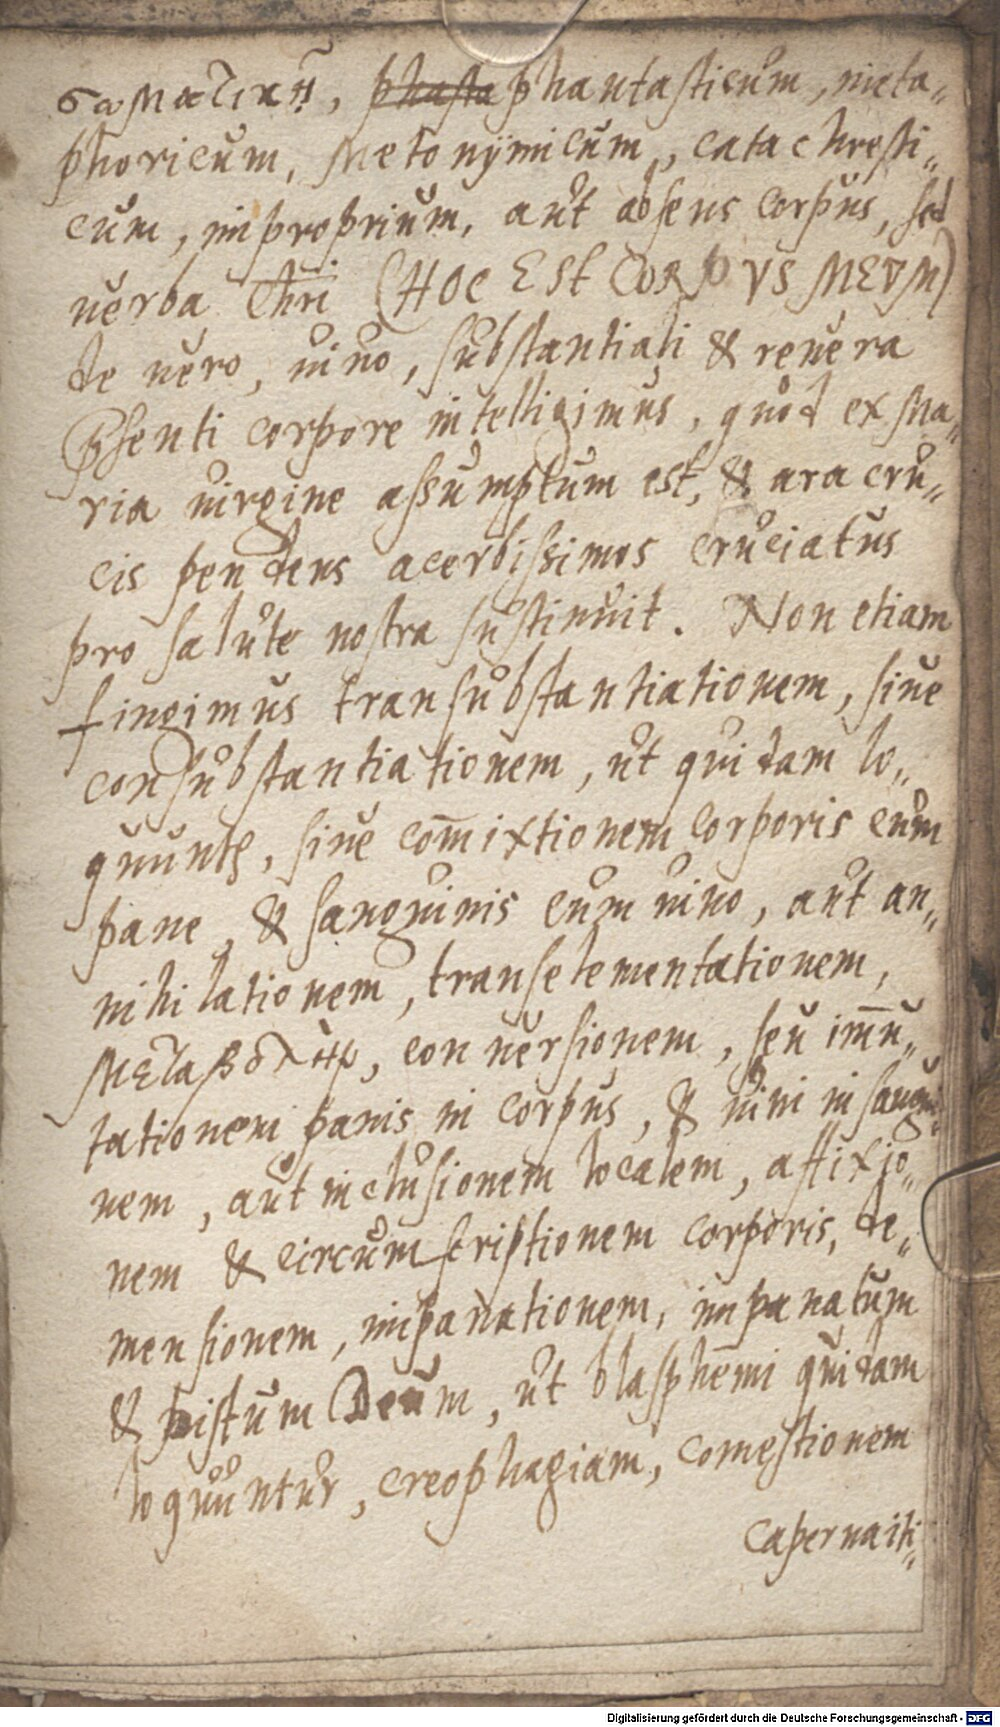 σωματικῆ, phasta phantasticum, meta„
phoricum, Metonÿmicum, catachresti„
cum, improprium, aut absens corpus, sed
uerba Chri (HOC ESt CORPVS MEVM)
de uero, uiuo, substantiali & reuera
pͤsenti corpore intelligimus, quod ex Ma„
ria uirgine assumptum est, & ara cru„
cis pendens acerbissimos cruciatus
pro salute nostra sustinuit. Non etiam
fingimus transubstantiationem, siue
consubstantiationem, ut quidam lo„
quuntꝭ, siue com̄ixtionem corporis cum
pane, & sanguinis cum uino, aut an„
nihilationem, transelementationem,
μεταβολὴν, conuersionem, seu im̄u„
tationem panis in corpus, & uini in sangui„
nem, aut inclusionem localem, affixio„
nem & circumscriptionem corporis, de„
mensionem, impanationem, impanatum
& pistum Deum, ut blasphemi quidam
loquuntur, creophagiam, comestionem
Capernaiti„
Digitalisierung gefördert durch die Deutsche Forschungsgemeinschaft - DFG